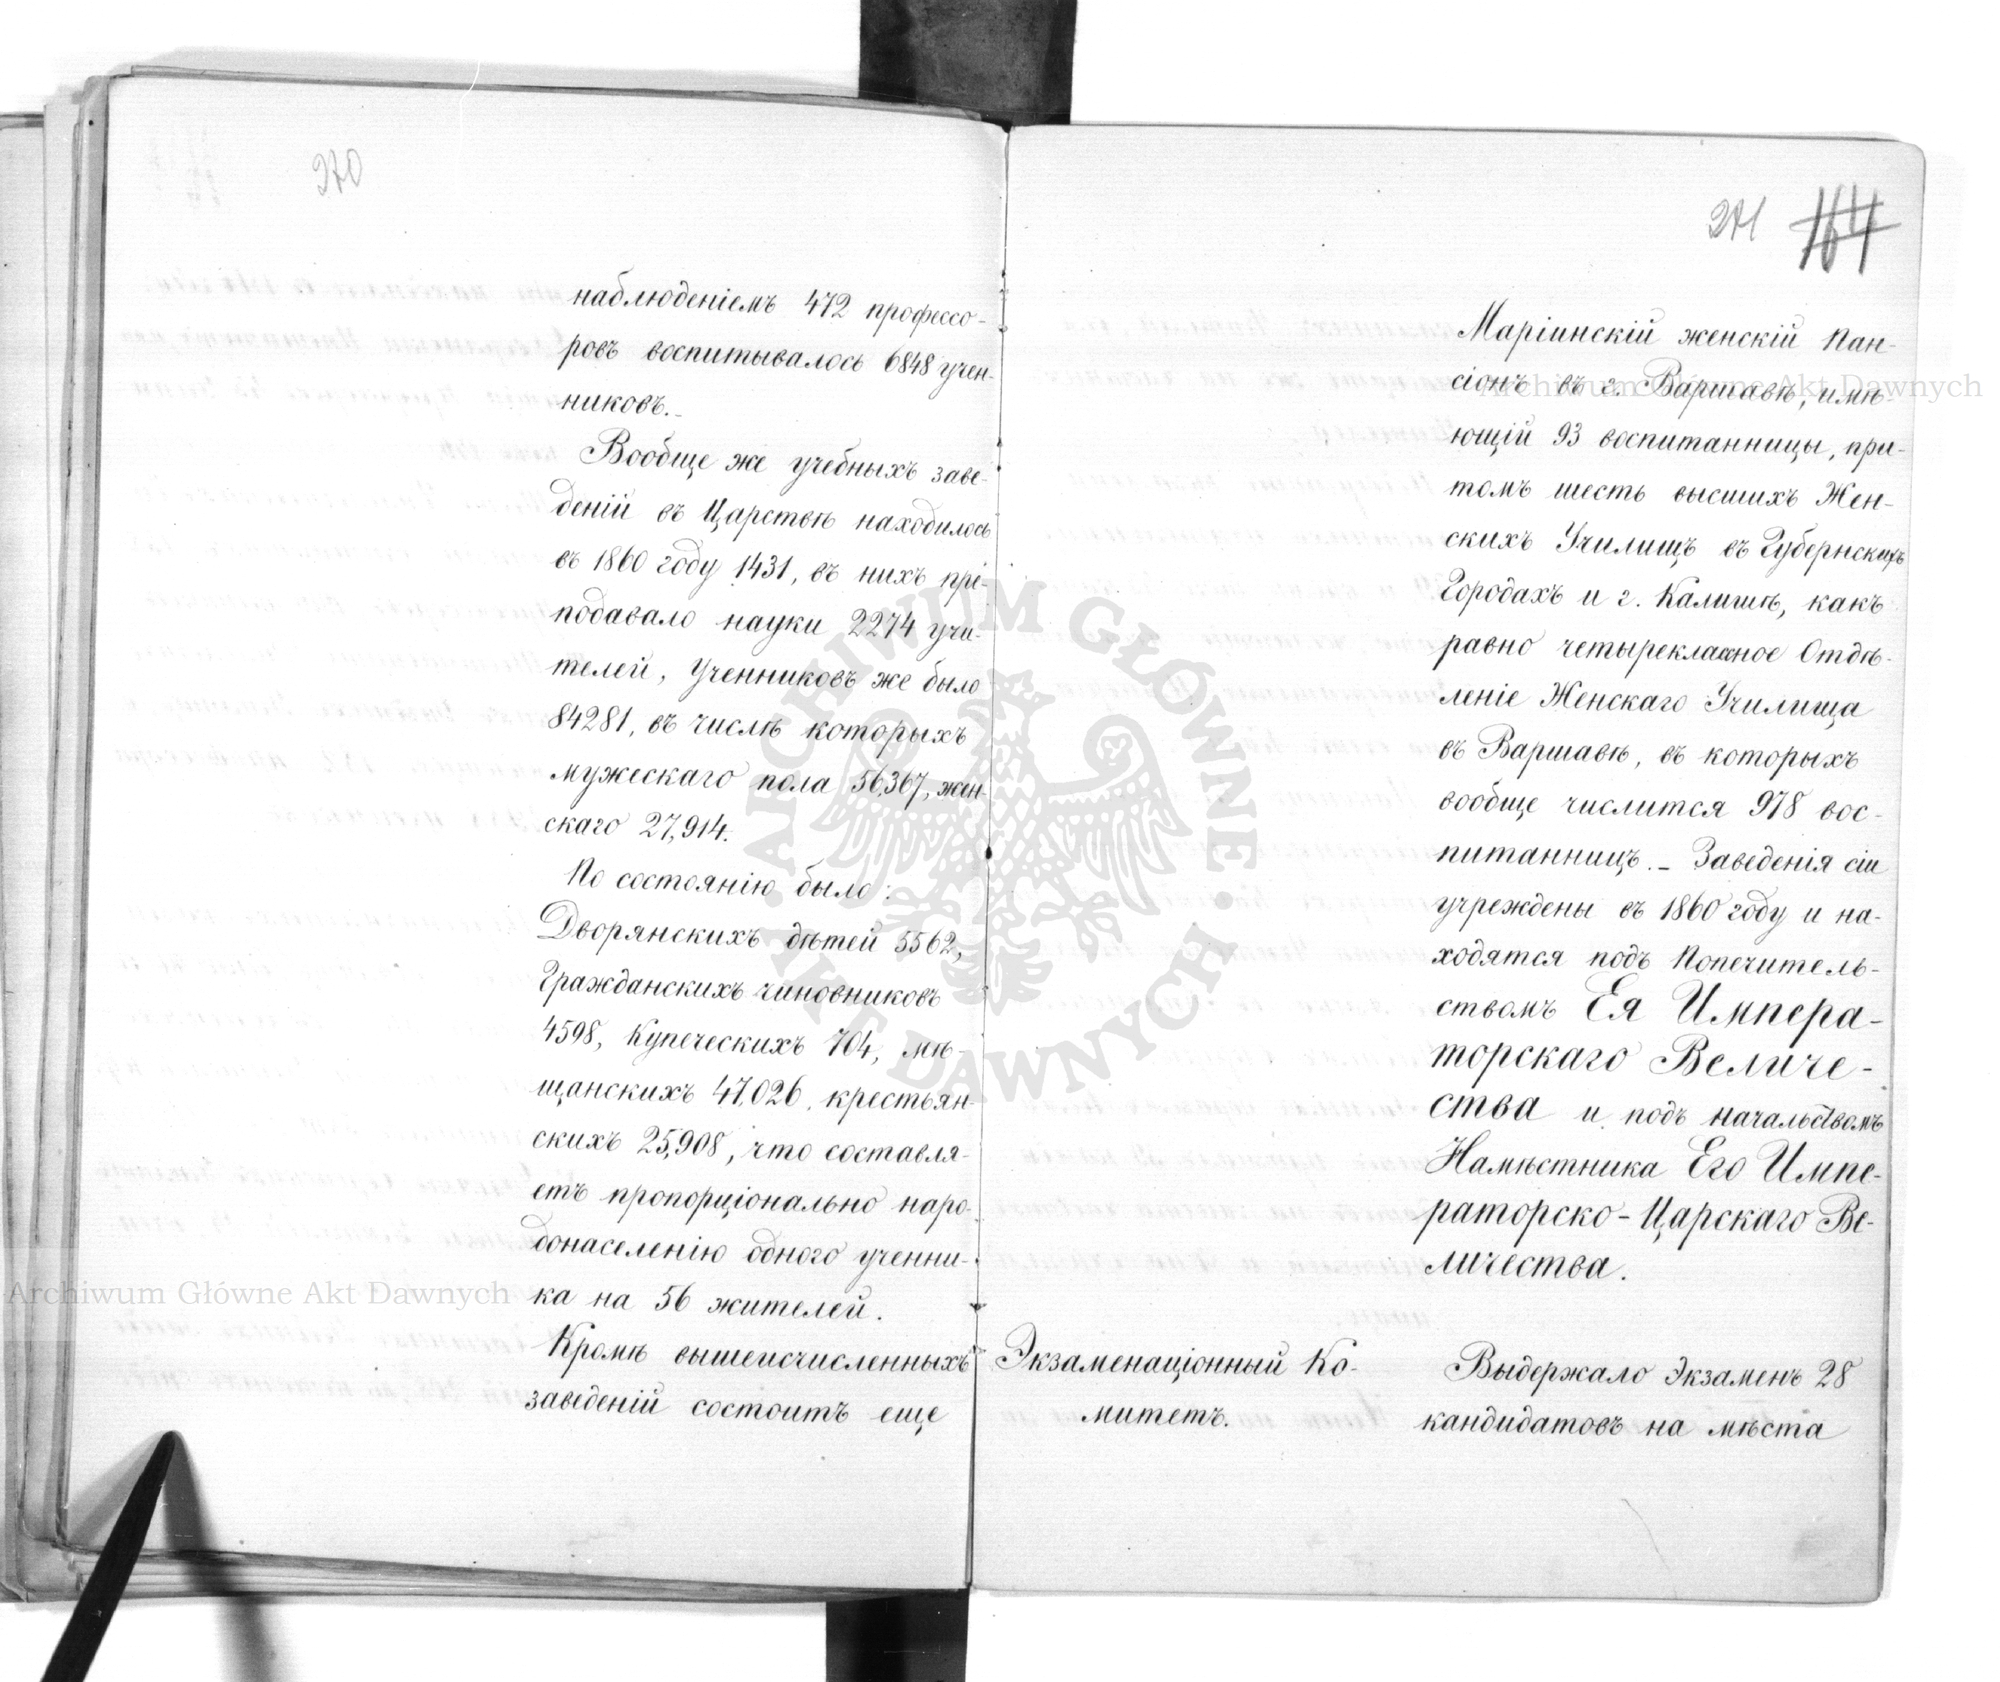 270
наблюденіемъ 472 профессо-
ровъ воспитывалось 6848 учен-
никовъ.
Вообще же учебныхъ заве-
деній въ Царствѣ находилось
въ 1860 году 1431, въ нихъ прі-
подавало науки 2274 учи-
телей, Ученниковъ же было
84281, въ числѣ которыхъ
мужескаго пола 56,367, жен-
скаго 27,914.
По состоянію было:
Дворянскихъ дѣтей 5562,
Гражданскихъ чиновниковъ
4598, Купеческихъ 704, мѣ-
щанскихъ 47,026, крестьян-
скихъ 25,908, что составля-
етъ пропорціонально наро-
донаселенію одного ученни-
ка на 56 жителей.
Кромѣ вышеисчисленныхъ
заведеній состоитъ еще
271 164
Маріинскій женскій Пан-
сіонъ въ г. Варшавѣ, имѣ-
ющій 93 воспитанницы, при-
томъ шесть высшихъ Жен-
скихъ Училищъ въ Губернскихъ
Городахъ и г. Калишѣ, какъ
равно четыреклассное Отдѣ-
леніе Женскаго Училища
въ Варшавѣ, въ которыхъ
вообще числится 978 вос-
питанницъ. – Заведенія сіи
учреждены въ 1860 году и на-
ходятся подъ Попечитель-
ствомъ Ея Импера-
торскаго Величе-
ства и подъ начальствомъ
Намѣстника Его Импе-
раторско-Царскаго Ве-
личества.
Экзаменаціонный Ко-
митетъ.
Выдержало Экзаменъ 28
кандидатовъ на мѣста
Archiwum Główne Akt Dawnych
Archiwum Główne Akt Dawnych
ARCHIWUM GŁÓWNE AKT DAWNYCH